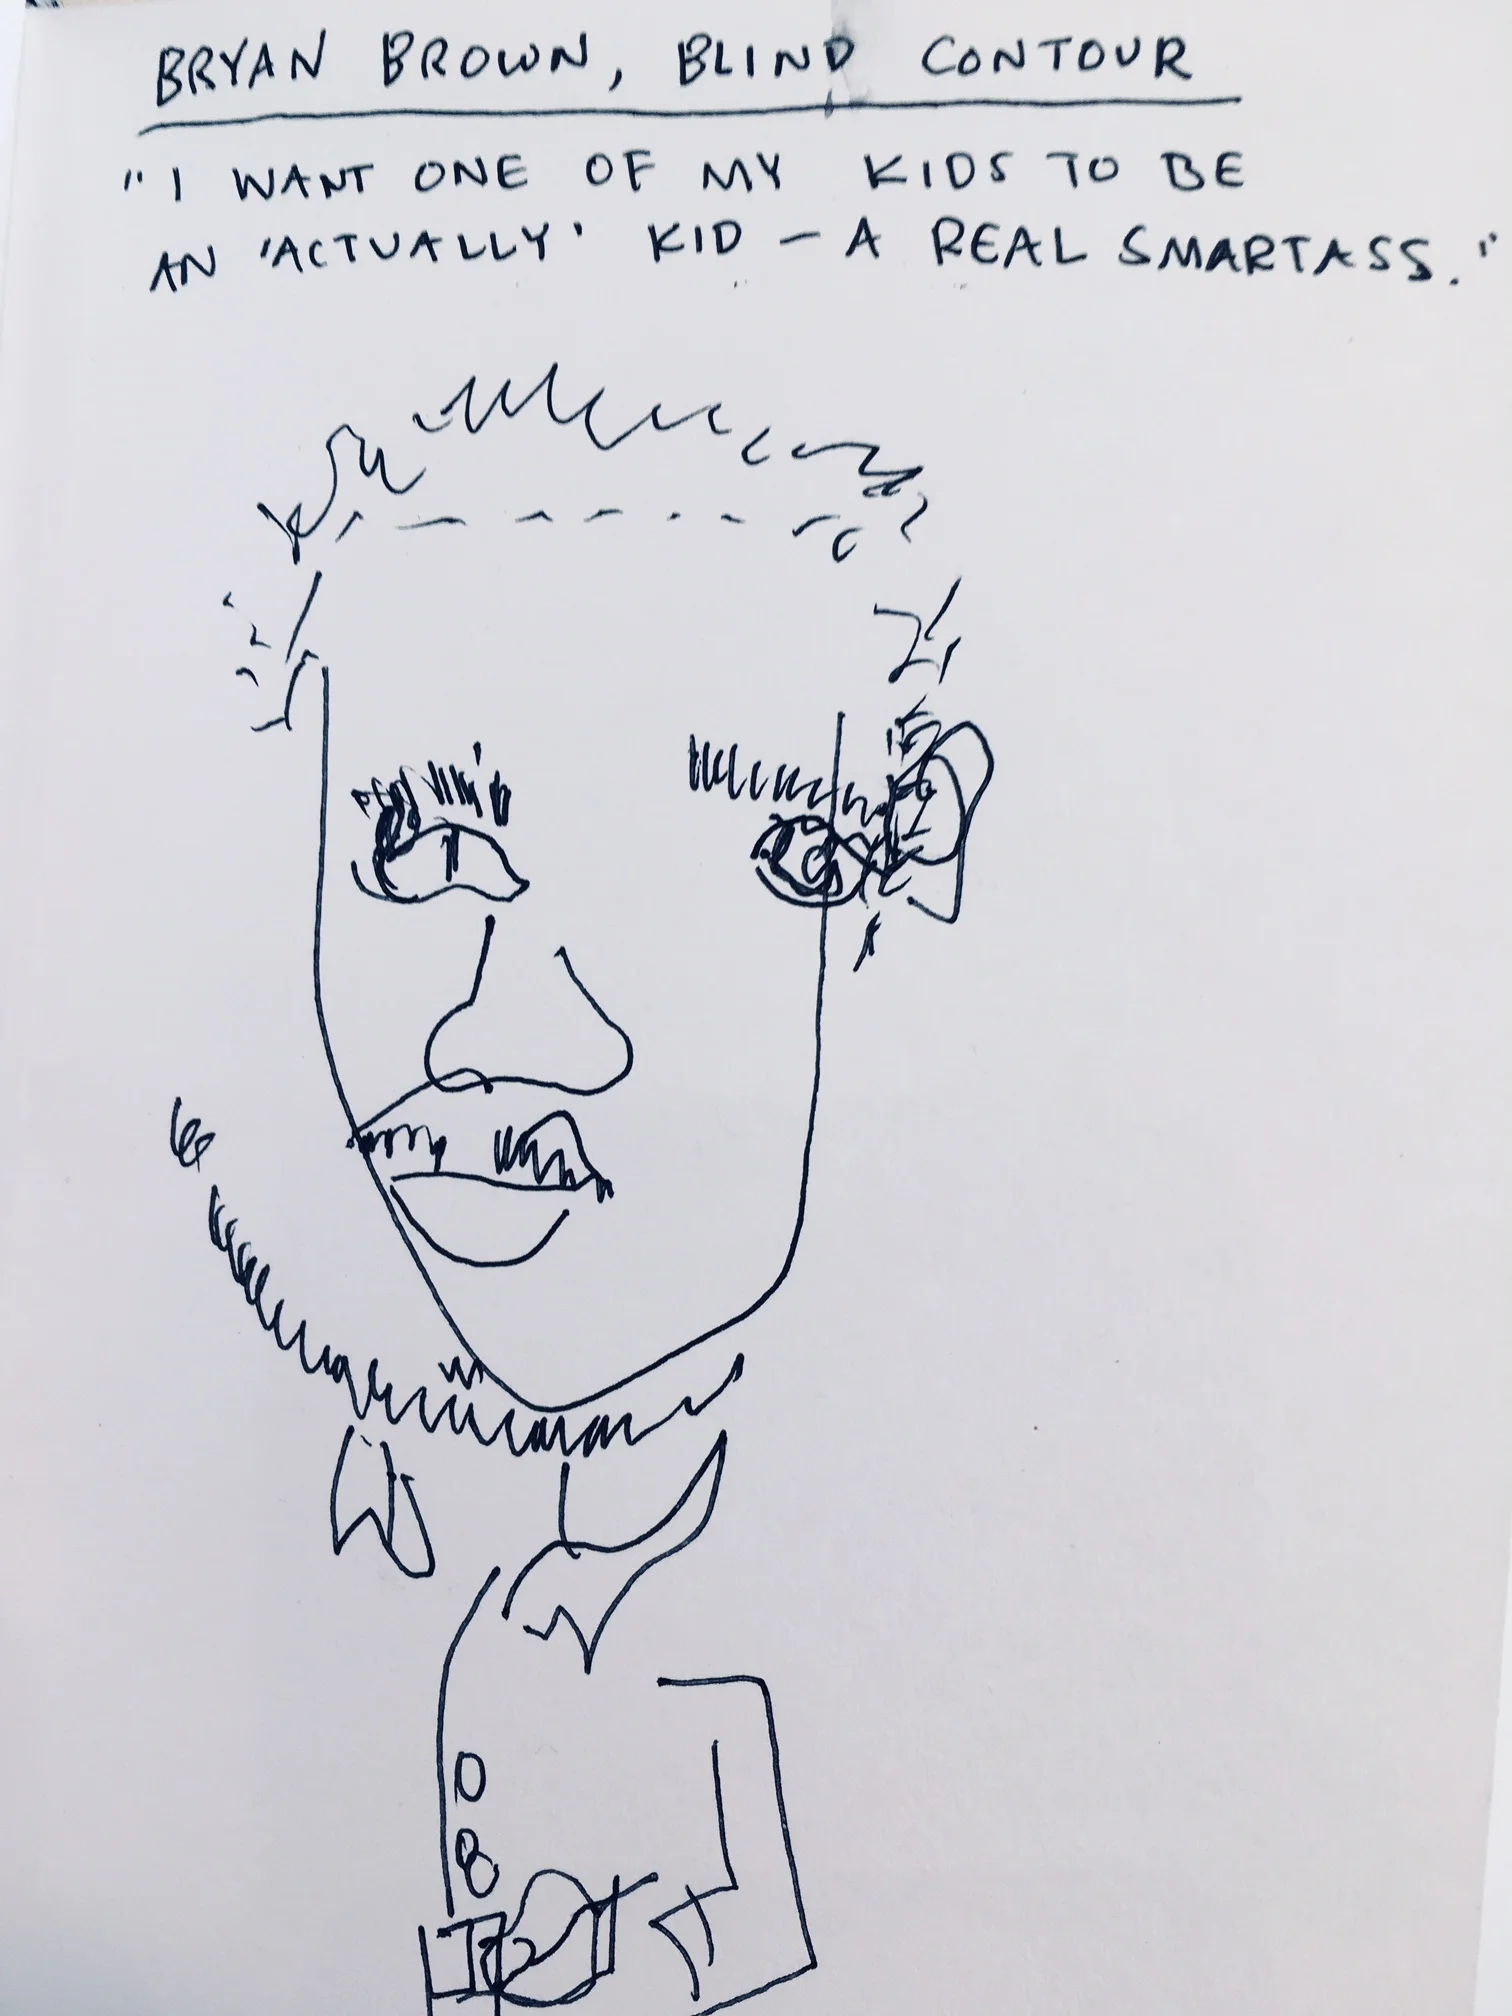 BRYAN BROWN, BLIND CONTOUR
"I WANT ONE OF MY KIDS TO BE
AN 'ACTUALLY' KID - A REAL SMARTASS."